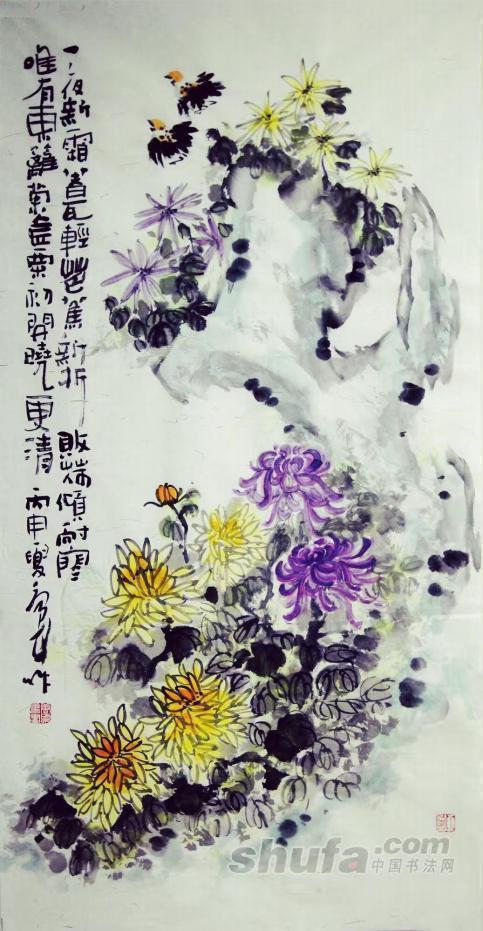 一夜新霜著瓦輕芭蕉新折敗荷傾耐寒
唯有東籬菊金粟初開曉更清 丙申夏 作
shufa.com
中国书法网